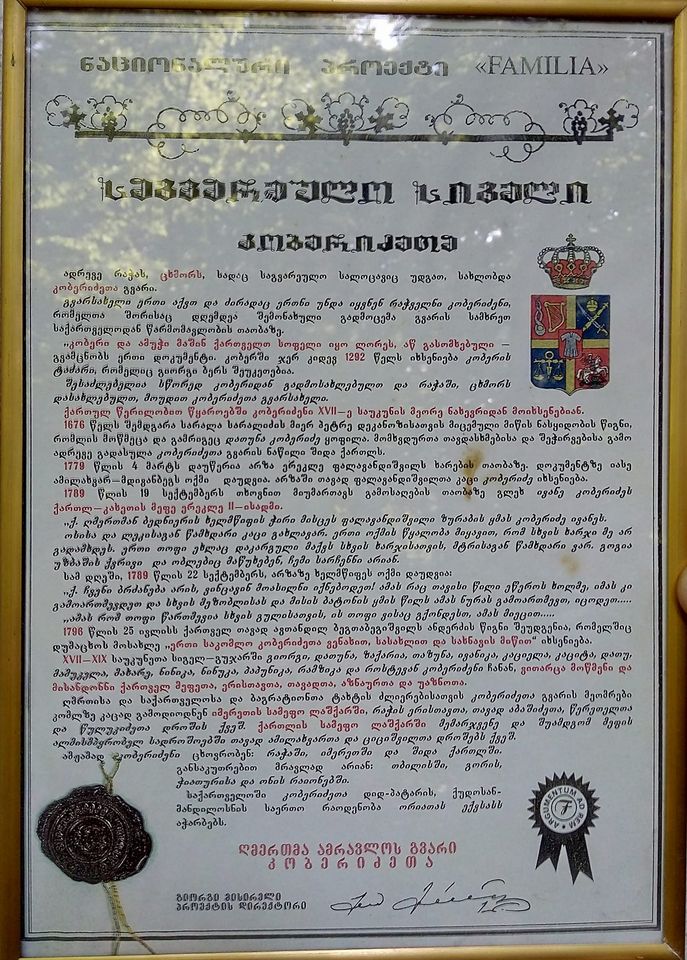 ნაციონალური პროექტი «FAMILIA»
საგვარეულო სიგელი
კობერიძეთა
ადრევე რაჭას, ცხმორს, სადაც საგვარეულო სალოცავიც უდგათ, სახლობდა
კობერიძეთა გვარი.
გვარსახელი ერთი აქვთ და ძირადაც ერთნი უნდა იყვნენ რაჭველნი კობერიძენი,
რომელთა შორისაც დღემდეა შემონახული გადმოცემა გვარის სამხრეთ
საქართველოდან წარმომავლობის თაობაზე.
„კობერი და ამუჟი მაშინ ქართველთ სოფელი იყო ლორეს, აწ გასომხებული —
გვამცნობს ერთი დოკუმენტი. კობერში ჯერ კიდევ 1292 წელს იხსენიება კობერის
ტაძარი, რომელიც გიორგი ბერს შეუკეთებია.
შესაძლებელია სწორედ კობერიდან გადმოსახლებულთ და რაჭაში, ცხმორს
დასახლებულთ, მოუდით კობერიძეთა გვარსახელი.
ქართულ წერილობით წყაროებში კობერიძენი XVII—ე საუკუნის მეორე ნახევრიდან მოიხსენებიან.
1676 წელს შემდგარა სარალა სარალიძის მიერ პეტრე დეკანოზისათვის მიცემული მიწის ნასყიდობის წიგნი,
რომლის მოწმეცა და გამრიგეც დათუნა კობერიძე ყოფილა. მომხვდურთა თავდასხმებისა და შეჭირვებისა გამო
ადრევე გადასულა კობერიძეთა გვარის ნაწილი შიდა ქართლს.
1779 წლის 4 მარტს დაუწერია არზა ერეკლე ფალავანდიშვილს ხარების თაობაზე. დოკუმენტზე იასე
ამილახვარ—მდივანბეგს ოქმი დაუდვია. არზაში თავად ფალავანდიშვილთა კაცი კობერიძე იხსენიება.
1789 წლის 19 სექტემბერს თხოვნით მიუმართავს გამოსაღების თაობაზე გლეხ ივანე კობერიძეს
ქართლ—კახეთის მეფე ერეკლე II—ისადმი.
„ქ. ღმერთმან ბედნიერის ხელმწიფის ჭირი მისცეს ფალავანდიშვილი ზურაბის ყმას კობერიძე ივანეს.
ოსისა და ლეკისაგან წამხდარი კაცი გახლავარ. ერთი ოქმის წყალობა მიყავით, რომ სხვის ხარჯი მე არ
გადამხდეს. ერთი თოფი ეხლაც დაკარგული მაქვს სხვის ხარჯისათვის, მტრისაგან წამხდარი ვარ. გოგია
უზბაშის ქვრივი და ობლებიც მაწუხებენ, ჩემი სარჩენნი არიან.
სამ დღეში, 1789 წლის 22 სექტემბერს, არზაზე ხელმწიფეს ოქმი დაუდვია:
„ქ. ჩვენი ბრძანება არის, ვინცავინ მოასილნი იქნებოდეთ! ამას რაც თავისი წილი ეწეროს ხოლმე, იმას კი
გამოართმევდეთ და სხვის მეზობლისას და მისის ბატონის ყმის წილს ამას ნურას გამოართმევთ, იცოდეთ.....
„ამას რომ თოფი წართმევია სხვის გულისათვის, ის თოფი ვისაც გქონდესთ, ამას მიეცით.....
1796 წლის 25 ივლისს ქართველ თავად ავთანდილ ბეგთაბეგიშვილს ანდერძის წიგნი შეუდგენია, რომელშიც
დუმაცხოს მოსახლე „ერთი საკომლო კობერიძე ვენახით, სასახლით და სახნავის მიწით“ იხსენიება.
XVII—XIX საუკუნეთა სიგელ—გუჯარში გიორგი, დათუნა, ზაქარია, თაზუნა, ივანიკა, კაციელა, კაციტა, დათუ,
მამუკელა, მახარე, ნინიკა, ნინუკა, პაპუნიკა, რამზიკა და როსტევან კობერიძენი ჩანან, ვითარცა მოწმენი და
მისანდონნი ქართველ მეფეთა, ერისთავთა, თავადთა, აზნაურთა და უაზნოთა.
ღმრთისა და საქართველოსა და ბაგრატიონთა ტახტის ძლიერებისათვის კობერიძეთა გვარის მეომრები
კომლზე კაცად გამოდიოდნენ იმერეთის სამეფო ლაშქარში, რაჭის ერისთავთა, თავად აბაშიძეთა, წერეთელთა
და წულუკიძეთა დროშის ქვეშ. ქართლის სამეფო ლაშქარში მემარჯვენე და შუამდგომ მეფის
ალმისმპყრობელ სადროშოებში თავად ამილახვართა და ციციშვილთა დროშებს ქვეშ.
ამჟამად კობერიძენი ცხოვრობენ: რაჭაში, იმერეთში და შიდა ქართლში.
განსაკუთრებით მრავლად არიან: თბილისში, გორის,
ჭიათურისა და ონის რაიონებში.
საქართველოში კობერიძეთა დიდ-პატარის, ქუდოსან-
მანდილოსნის საერთო რაოდენობა ორიათას ექვსასს
აჭარბებს.
ღმერთმა ამრავლოს გვარი
კობერიძეთა
გიორგი მისირელი
პროექტის დირექტორი
ARGUMENTUM AD REM
F